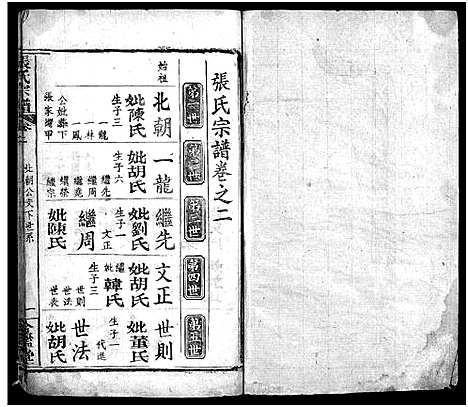 張氏宗譜卷之二
第一世
第二世
第三世
第四世
第五世
始祖
北朝
妣陳氏
生子三
一龍
一林
一鳳
公妣葬下
張家灣甲
一龍
妣胡氏
生子六
繼先
繼周
繼堯
繼宗
繼先
妣劉氏
生子一
文正
繼周
妣陳氏
文正
妣胡氏
繼妣韓氏
生子三
世則
世法
世表
世則
妣董氏
生子一
代進
世法
妣胡氏
張氏宗譜
卷二
北朝公支下世系
一